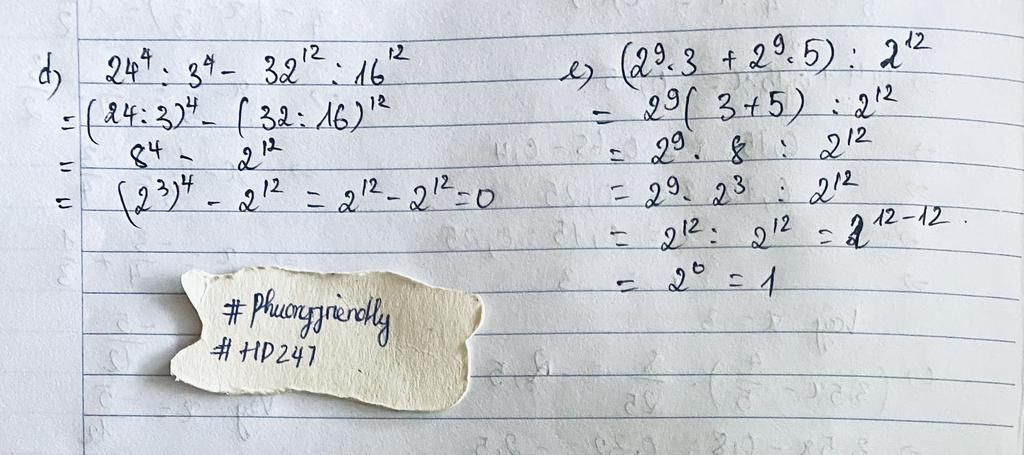 d) 24⁴ : 3⁴ - 32¹² : 16¹²
= (24 : 3)⁴ - (32 : 16)¹²
= 8⁴ - 2¹²
= (2³)⁴ - 2¹² = 2¹² - 2¹² = 0
e) (2⁹.3 + 2⁹.5) : 2¹²
= 2⁹( 3+5) : 2¹²
= 2⁹. 8 : 2¹²
= 2⁹. 2³ : 2¹²
= 2¹² : 2¹² = 2¹²⁻¹².
= 2⁰ = 1
# Phuongfriendly
# HD247